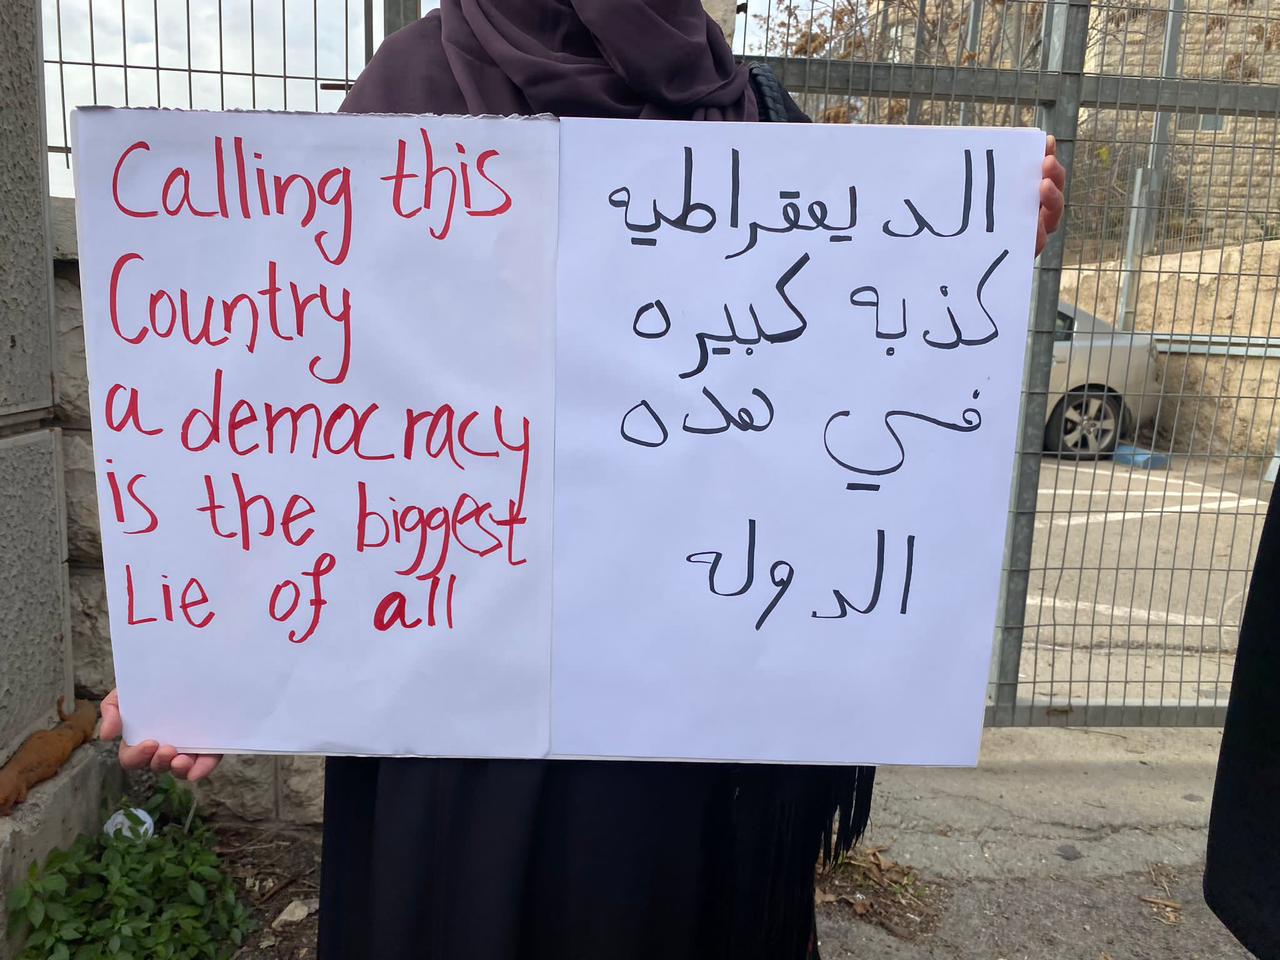 Calling this
Country
a democracy
is the biggest
Lie of all
الديمقراطيه
كذبه كبيره
في هده
الدوله